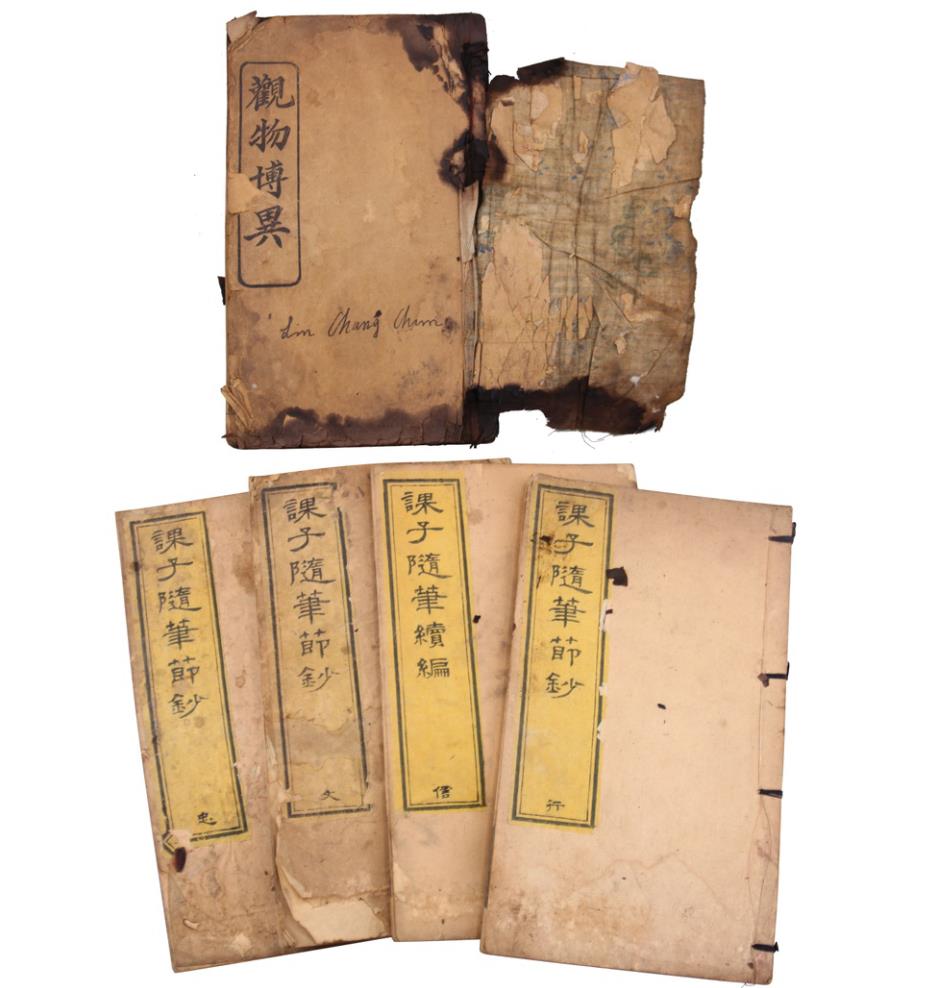 觀物博異
Lin Chang Chun
課子隨筆節鈔
忠
課子隨筆節鈔
文
課子隨筆續編
信
課子隨筆節鈔
行